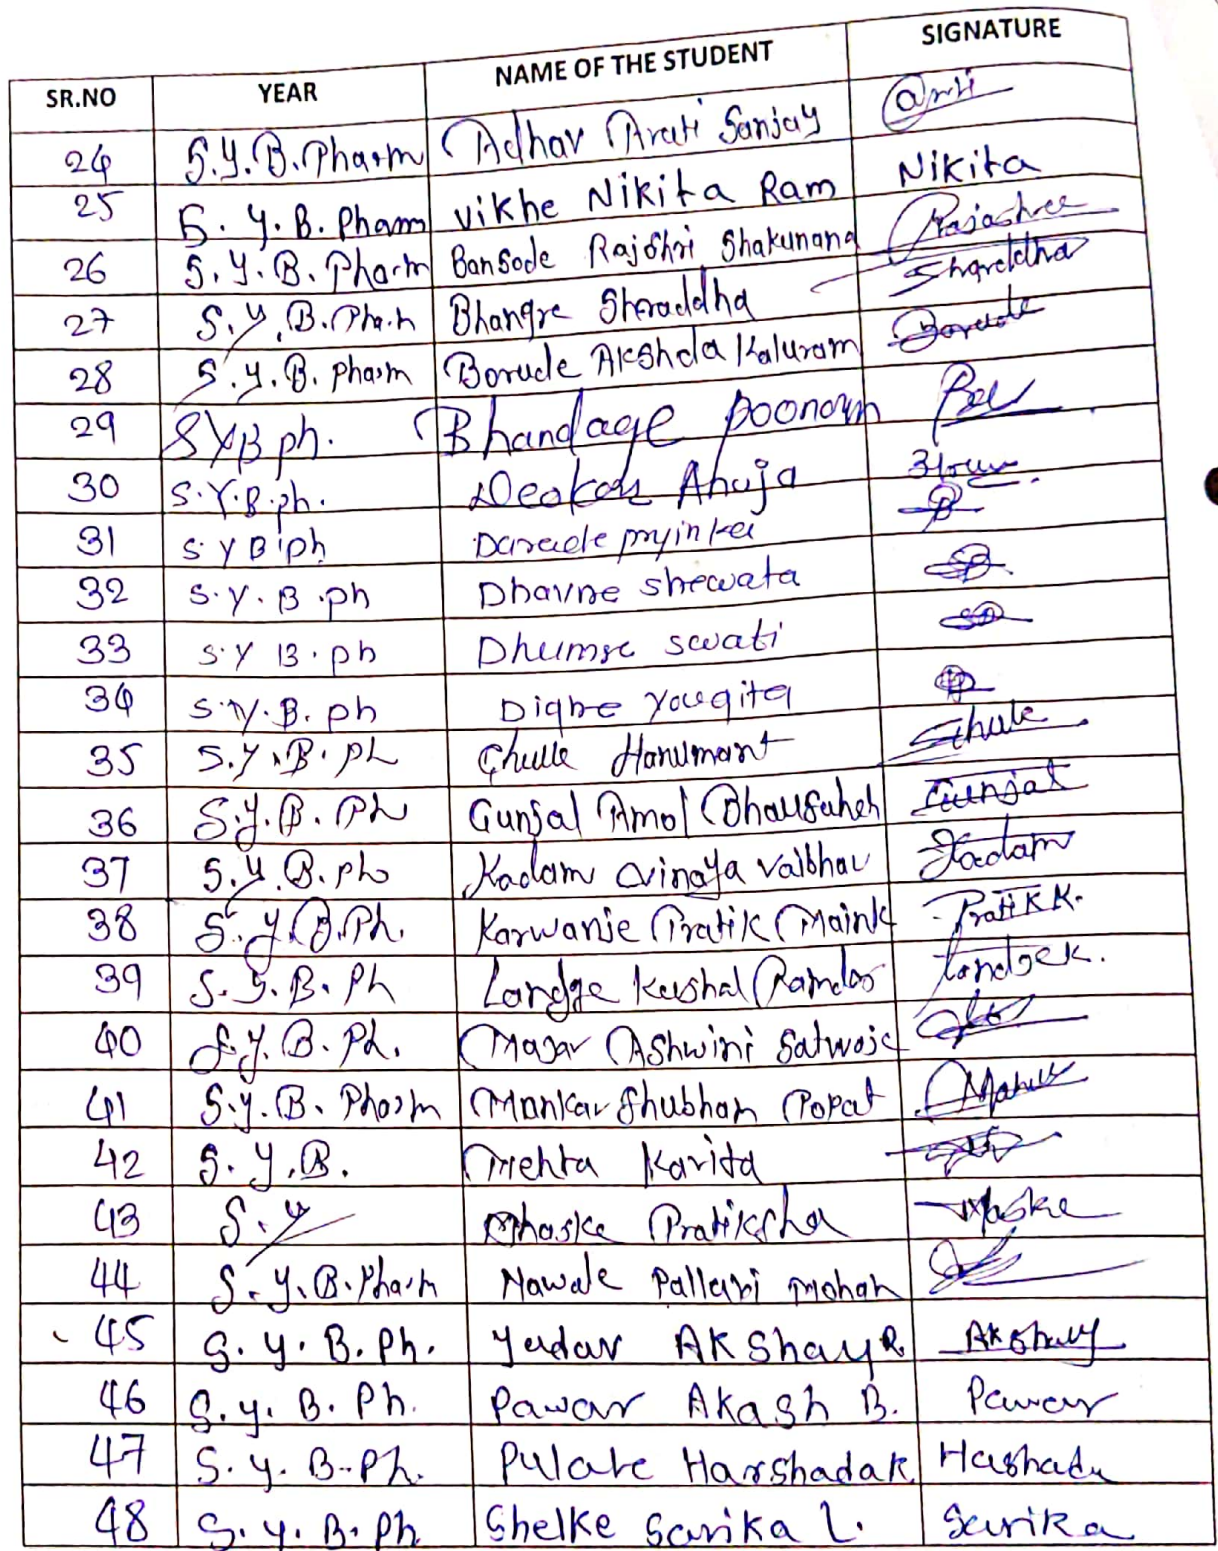 SR.NO YEAR NAME OF THE STUDENT SIGNATURE
24 S.Y.B.Pharm Adhav Arati Sanjay Arti
25 S.Y.B.Pham Vikhe Nikita Ram Nikita
26 S.Y.B.Pharm Bansode Rajshri Shakunand Rajashree
27 S.Y.B.Pharm Bhangre Shraddha Sharddha
28 S.Y.B.Pharm Borude Akshda Kaluram Borude
29 SYB ph. Bhandage poonam
30 S.Y.B.ph. Deokar Ahuja
31 S Y B ph Darade
32 S.Y.B.ph Dhavne shewata
33 S.Y B.ph Dhumse swati
34 S.Y.B.ph Dighe Yougita
35 S.Y.B.ph Ghule Hanumant Ghule
36 S.Y.B.Ph Gunjal Amol Bhausaheb Gunjal
37 S.Y.B.ph Kadam vinaya vaibhav Kadam
38 S.Y.B.Ph. Karwanje Pratik Maink Pratik K.
39 S.Y.B.Ph Landge Kushal Ramdas Landge K.
40 S.Y.B.Ph. Magar Ashwini Satwaje
41 S.Y.B.Pharm Mankar Shubham Popat
42 S.Y.B. Mehta Kavita
43 S.Y Mhaske Pratiksha Maske
44 S.Y.B.Pharm Nawale Pallavi mohan
45 S.Y.B.Ph. Yadav AKShay R. Akshay
46 S.y.B.Ph. Pawar AKash B. Pawar
47 S.y.B.Ph. Pulate Harshadak Hashada
48 S.y.B.Ph Shelke Sarika L. Sarika